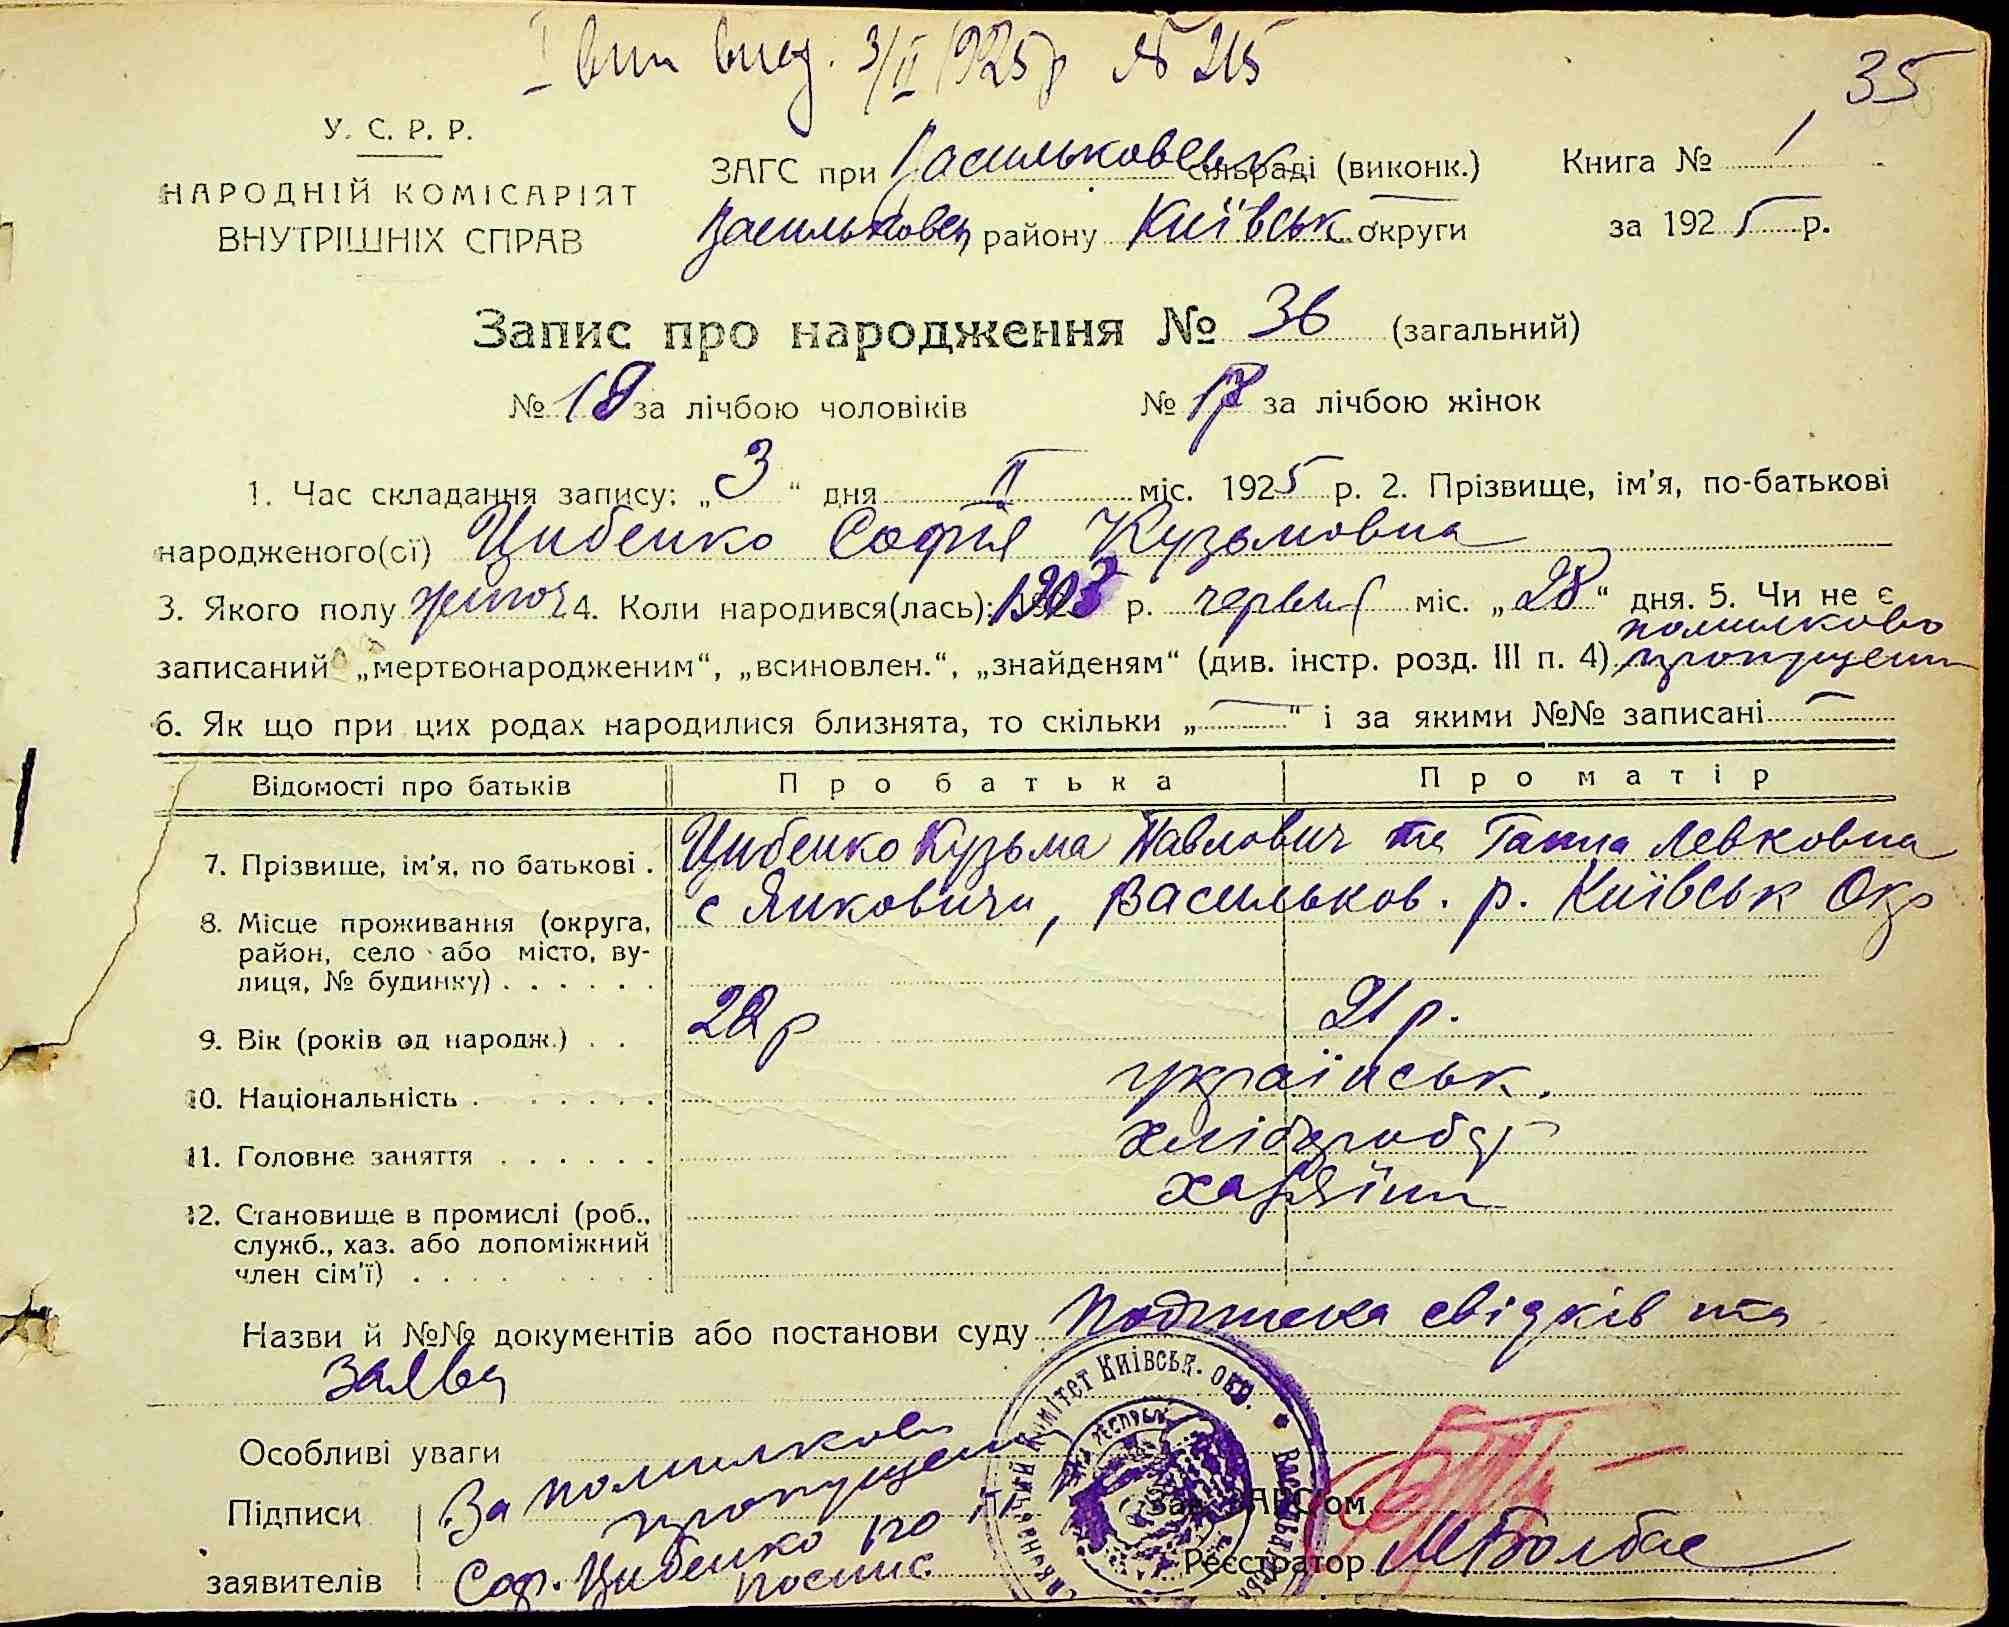 I вип вид. 3/II 1925 р № 215
35
У. С. Р. Р.
НАРОДНІЙ КОМІСАРІЯТ
ВНУТРІШНІХ СПРАВ
ЗАГС при Васильковськ сільраді (виконк.)
Васильковськ району Київськ округи
Книга № 1
за 1925 р.
Запис про народження № 36 (загальний)
№ 18 за лічбою чоловіків № за лічбою жінок
1. Час складання запису: „3“ дня II міс. 1925 р. 2. Прізвище, ім'я, по-батькові
народженого(ої) Цибенко Софія Кузьмовна
3. Якого полу жіноч 4. Коли народився(лась): 1903 р. червня міс. „28“ дня. 5. Чи не є
помилково
записаний „мертвонародженим“, „всиновлен.“, „знайденям“ (див. інстр. розд. III п. 4) пропущена
6. Як що при цих родах народилися близнята, то скільки „—“ і за якими №№ записані —
Відомості про батьків Про батька Про матір
7. Прізвище, ім'я, по батькові . Цибенко Кузьма Павлович та Ганна Левковна
с Янковичи, Васильков. р. Київськ Окр
8. Місце проживання (округа,
район, село або місто, ву-
лиця, № будинку) . . . . . .
9. Вік (років од народж.) . . 22 р 21 р.
10. Національність . . . . . . . українськ.
11. Головне заняття . . . . . . хлібороби
12. Становище в промислі (роб.,
служб., хаз. або допоміжний
член сім'ї) . . . . . . . . .
хазяїни
Назви й №№ документів або постанови суду Подписка свідків та
заява
Особливі уваги
Підписи
заявителів
За помилково
пропущен
Соф. Цибенко по
Зав. ЗАГС'ом
Реєстратор МБолбас
Комітет Київськ. окр.